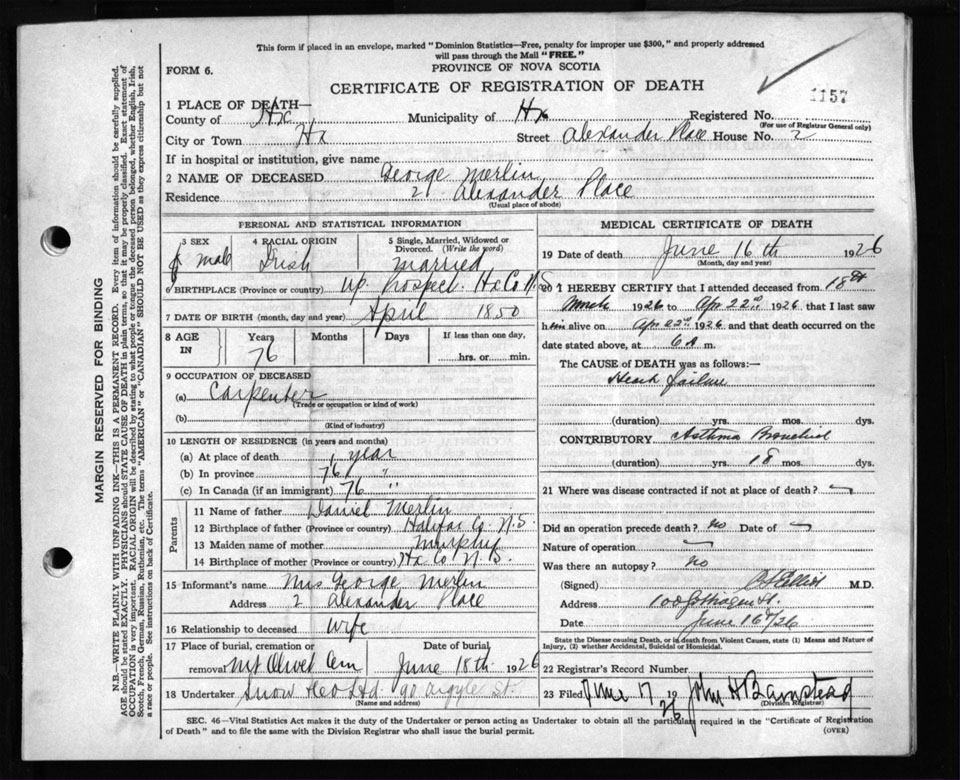 This form if placed in an envelope, marked "Dominion Statistics—Free, penalty for improper use $300," and properly addressed
will pass through the Mail "FREE."
FORM 6.
PROVINCE OF NOVA SCOTIA
CERTIFICATE OF REGISTRATION OF DEATH
1157
1 PLACE OF DEATH—
County of Hx Municipality of Hx Registered No.
(For use of Registrar General only)
City or Town Hx Street Alexander Place House No. 2
If in hospital or institution, give name
2 NAME OF DECEASED George Merlin
Residence 2 Alexander Place
(Usual place of abode)
PERSONAL AND STATISTICAL INFORMATION
3 SEX male
4 RACIAL ORIGIN Irish
5 Single, Married, Widowed or Divorced. (Write the word) married
6 BIRTHPLACE (Province or country) Up. Prospect Hx Co N.S
7 DATE OF BIRTH (month, day and year) April 1850
8 AGE IN Years 76 Months Days If less than one day, hrs. or min.
9 OCCUPATION OF DECEASED
(a) Carpenter
(Trade or occupation or kind of work)
(b)
(Kind of industry)
10 LENGTH OF RESIDENCE (in years and months)
(a) At place of death 1 year
(b) In province 76 "
(c) In Canada (if an immigrant) 76 "
Parents
11 Name of father Daniel Merlin
12 Birthplace of father (Province or country) Halifax Co N.S.
13 Maiden name of mother Murphy
14 Birthplace of mother (Province or country) Hx Co N.S.
15 Informant's name Mrs George Merlin
Address 2 Alexander Place
16 Relationship to deceased wife
17 Place of burial, cremation or Date of burial
removal Mt Olivet Cem June 18th 1926
18 Undertaker Snow & Co Ltd 90 Argyle St.
(Name and address)
MEDICAL CERTIFICATE OF DEATH
19 Date of death June 16th 1926
(Month, day and year)
20 I HEREBY CERTIFY that I attended deceased from 18th
March 1926 to Apr 22nd 1926 that I last saw
him alive on Apr 22nd 1926 and that death occurred on
date stated above, at 6 A m.
The CAUSE OF DEATH was as follows:—
Heart failure
(duration) yrs. mos. dys.
CONTRIBUTORY Asthma Bronchial
(duration) yrs. 18 mos. dys.
21 Where was disease contracted if not at place of death?
Did an operation precede death? no Date of
Nature of operation
Was there an autopsy? no
(Signed) M.D.
Address
Date June 16/26
State the Disease causing Death, or in death from Violent Causes, state (1) Means and Nature of
Injury, (2) whether Accidental, Suicidal or Homicidal.
22 Registrar's Record Number
23 Filed June 17 1926 John H Barnstead
(Division Registrar)
SEC. 46—Vital Statistics Act makes it the duty of the Undertaker or person acting as Undertaker to obtain all the particulars required in the "Certificate of Registration
of Death" and to file the same with the Division Registrar who shall issue the burial permit.
(OVER)
MARGIN RESERVED FOR BINDING
N.B.—WRITE PLAINLY WITH UNFADING INK—THIS IS A PERMANENT RECORD. Every item of information should be carefully supplied.
AGE should be stated EXACTLY. PHYSICIANS should STATE CAUSE OF DEATH in plain terms, so that it may be properly classified. Exact statement of
OCCUPATION is very important. RACIAL ORIGIN will be described by stating to what people or tongue the deceased person belonged, whether English, Irish,
Scotch, French, German, Russian, Ruthenian, etc. The terms "AMERICAN" or "CANADIAN" SHOULD NOT BE USED as they express citizenship but not
a race or people. See instructions on back of Certificate.